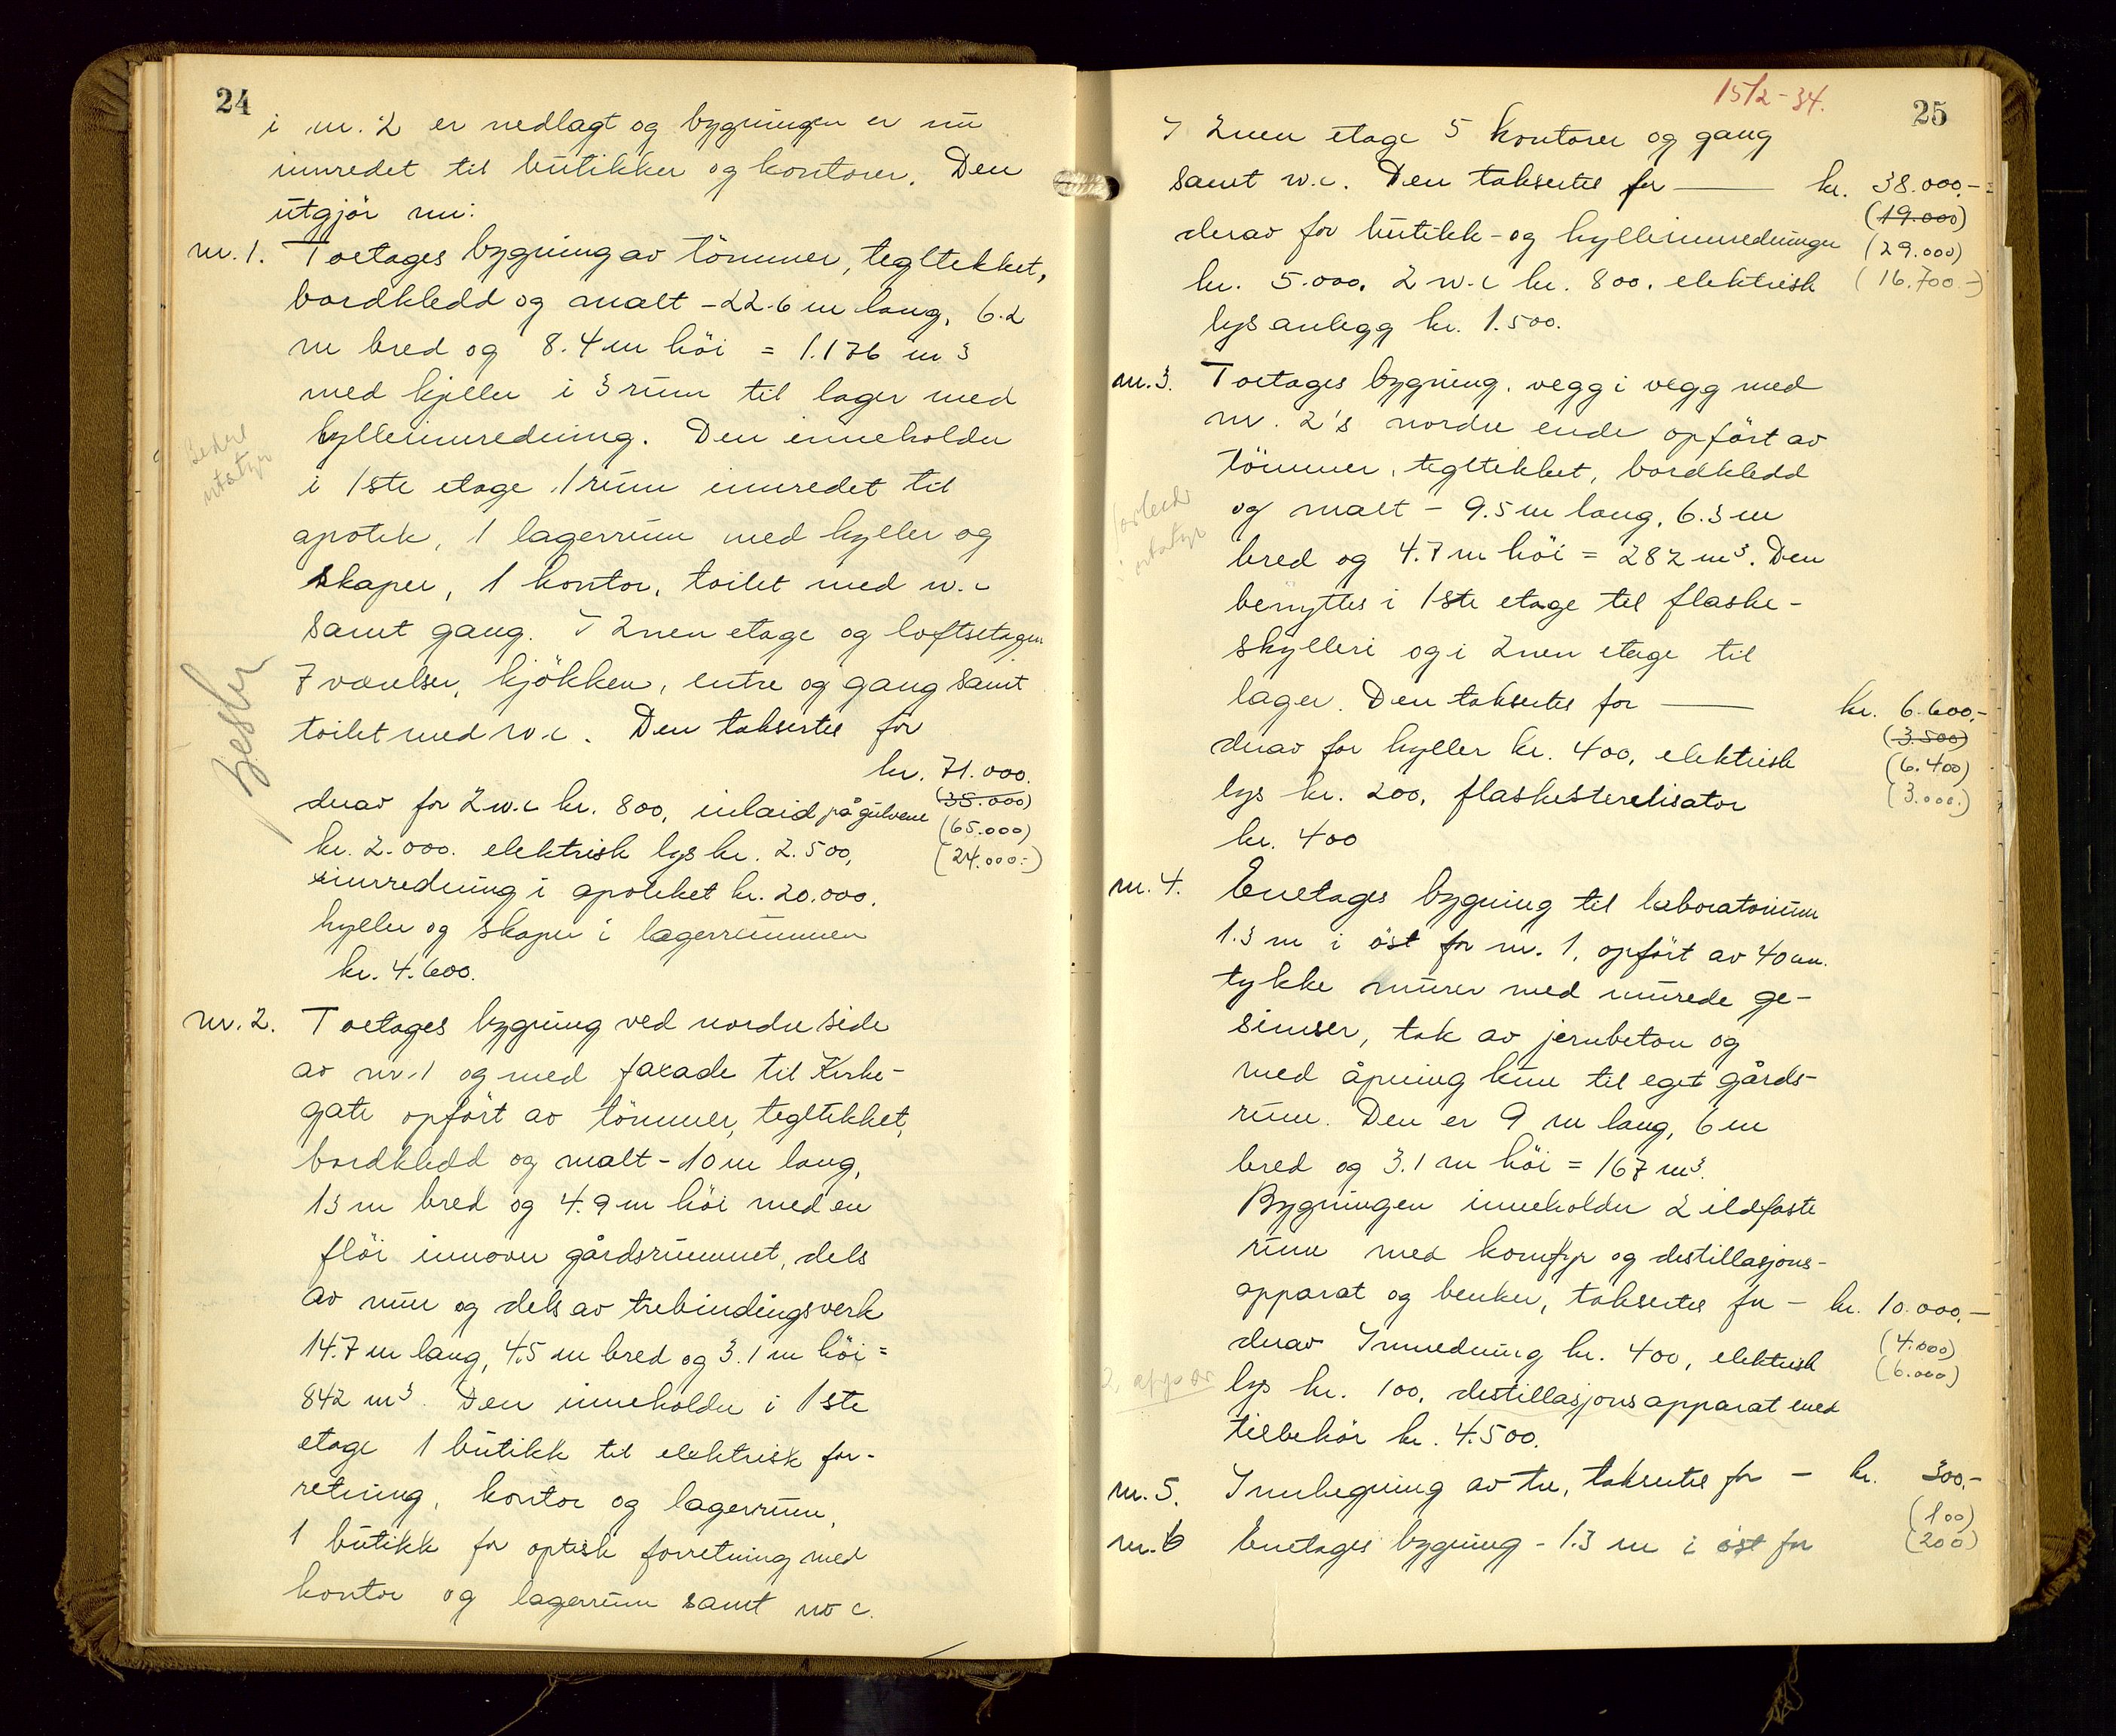 24
i nr. 2 er nedlagt og bygningen er nu
innredet til butikker og kontorer. Den
utgjör nu:
nr. 1. Toetages bygning av tömmer, tegltekket,
bordkledd og malt - 22.6 m lang, 6.2
m bred og 8.4 m höi = 1.176 m3
med kjeller i 3 rum til lager med
hylleinnredning. Den inneholder
i 1ste etage 1 rum innredet til
apotek, 1 lagerrum med hyller og
skaper, 1 kontor, toilet med w.c
samt gang. I 2nen etage og loftsetagen
7 værelser, kjökken, entre og gang samt
toilet med w.c. Den taksertes for
kr. 71.000.
(38.000)
derav for 2 w.c kr. 800, inlaid på gulvene
(65.000)
kr. 2.000. elektrisk lys kr. 2.500,
(24.000.-)
innredning i apoteket kr. 20.000.
hyller og skaper i lagerrummen
kr. 4.600.
nr. 2. Toetages bygning ved nordre side
av nr. 1 og med faxade til Kirke-
gate opfört av tömmer, tegltekket,
bordkledd og malt - 10 m lang,
13 m bred og 4.9 m höi med en
flöi innover gårdsrummet, dels
av mur og dels av trebindingsverk
14.7 m lang, 4.5 m bred og 3.1 m höi =
842 m3. Den inneholder i 1ste
etage 1 butikk til elektrisk for-
retning, kontor og lagerrum,
1 butikk for optisk forretning med
kontor og lagerrum samt w c.
15/2-34.
25
I 2nen etage 5 kontorer og gang
samt w.c. Den taksertes for — kr. 38.000,-
(19.000)
derav for butikk- og hylleinnredninger (29.000)
kr. 5.000, 2 w.c kr. 800, elektrisk (16.700.-)
lys anlegg kr. 1.500.
nr. 3. Toetages bygning, vegg i vegg med
nr. 2's nordre ende opfört av
tömmer, tegltekket, bordkledd
og malt - 9.5 m lang, 6.3 m
bred og 4.7 m höi = 282 m3. Den
benyttes i 1ste etage til flaske-
skylleri og i 2nen etage til
lager. Den taksertes for — kr. 6.600,-
(3.500)
derav for hyller kr. 400, elektrisk (6.400)
lys kr. 200, flaskesterelisator (3.000.)
kr. 400
nr. 4. Enetages bygning til laboratorium
1.3 m i öst for nr. 1, opfört av 40 cm.
tykke murer med murede ge-
simser, tak av jernbeton og
med åpning kun til eget gårds-
rum. Den er 9 m lang, 6 m
bred og 3.1 m höi = 167 m3.
Bygningen inneholder 2 ildfaste
rum med komfyr og destillasjons-
apparat og benker, taksertes for - kr. 10.000,-
(4.000)
derav Innredning kr. 400, elektrisk (6.000)
lys kr. 100, destillasjonsapparat med
tilbehör kr. 4.500.
nr. 5. Innhegning av tre, taksertes for - kr. 300,-
(100)
nr. 6 Enetages bygning - 1.3 m i öst for (200)